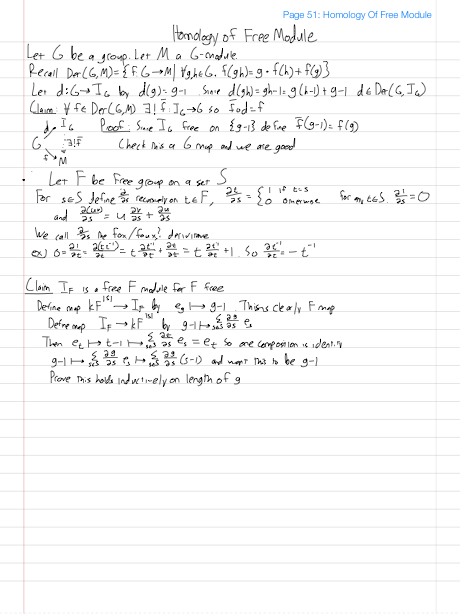 Page 51: Homology Of Free Module
Homology of Free Module
Let G be a group. Let M a G-module
Recall Der(G,M)={f:G→M| ∀g,h∈G, f(gh)=g·f(h)+f(g)}
Let d:G→I_G by d(g)=g-1 Since d(gh)=gh-1=g(h-1)+g-1 d∈Der(G,I_G)
Claim: ∀ f∈Der(G,M) ∃! f̄:I_G→G so f̄∘d=f
d↗ I_G Proof: Since I_G free on {g-1} define f̄(g-1)=f(g)
G ↓∃!f̄ Check this a G map and we are good
f↘ M
· Let F be free group on a set S
For s∈S define ∂/∂s recursively on t∈F, ∂t/∂s = {1 if t=s 0 otherwise for any t∈S. ∂1/∂s=0
and ∂(uv)/∂s = u ∂v/∂s + ∂u/∂s
We call ∂/∂s the fox/faux? derivative
ex) 0=∂1/∂t=∂(tt⁻¹)/∂t = t ∂t⁻¹/∂t + ∂t/∂t = t ∂t⁻¹/∂t +1. So ∂t⁻¹/∂t = -t⁻¹
Claim I_F is a free F module for F free
Define map kF^|S| → I_F by e_g ↦ g-1 This is clearly F map
Define map I_F → kF^|S| by g-1 ↦ Σ_{s∈S} ∂g/∂s e_s
Then e_t ↦ t-1 ↦ Σ_{s∈S} ∂t/∂s e_s = e_t so one composition is identity
g-1 ↦ Σ_{s∈S} ∂g/∂s e_s ↦ Σ_{s∈S} ∂g/∂s (s-1) and want this to be g-1
Prove this holds inductively on length of g